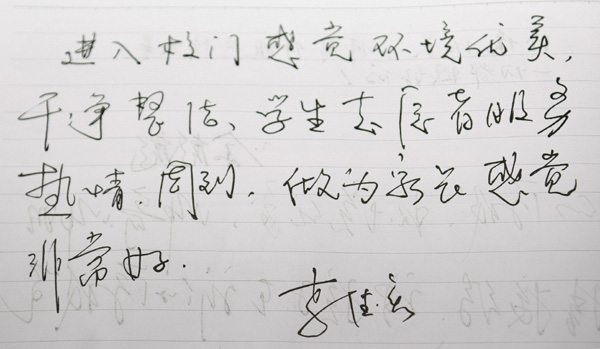 进入校门感觉环境优美,
干净整洁、学生志愿者服务
热情.周到.做为家长感觉
非常好.
李佳